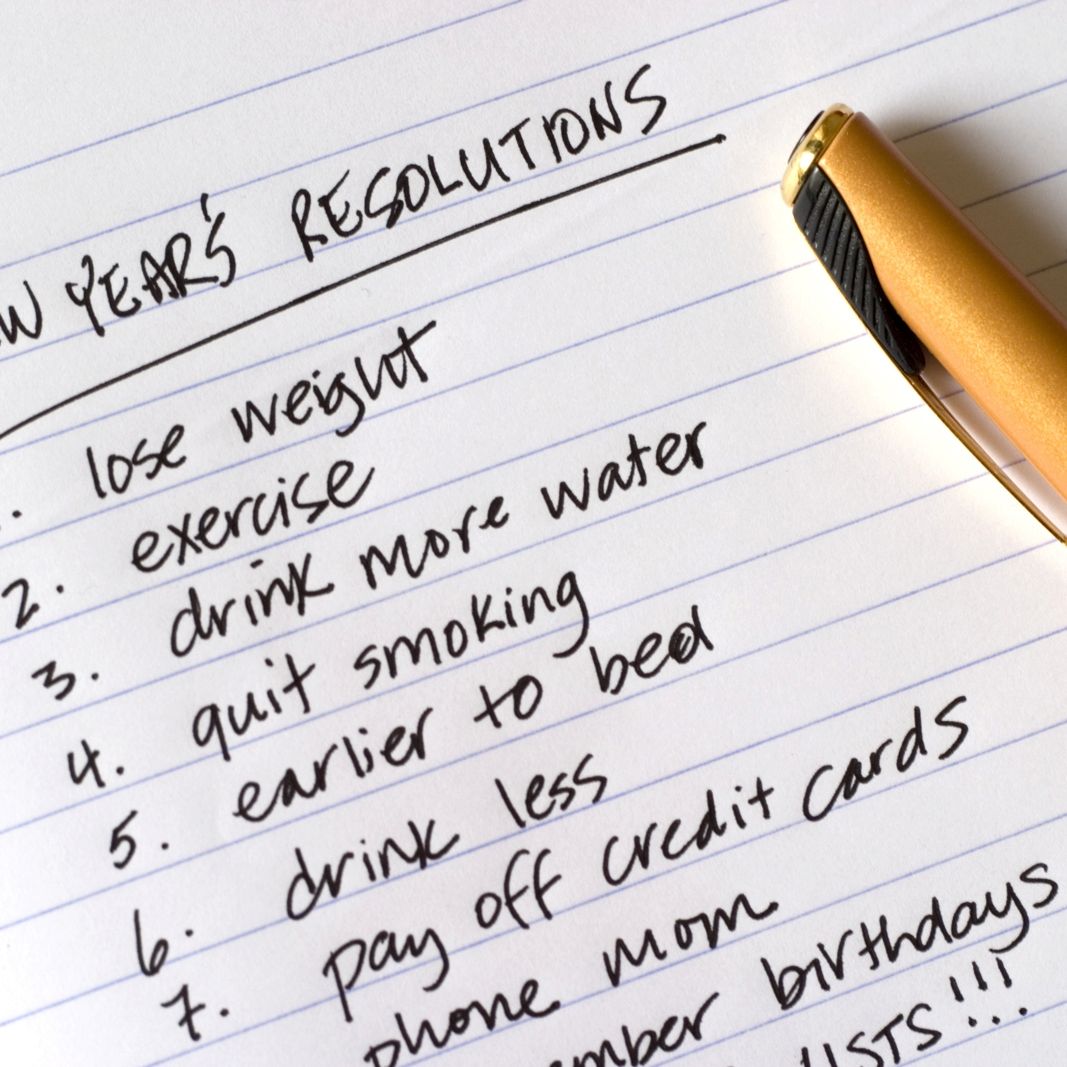 W YEAR'S RESOLUTIONS
. lose weight
2. exercise
3. drink more water
4. quit smoking
5. earlier to bed
6. drink less
7. pay off credit cards
phone mom
ember birthdays
ISTS!!!